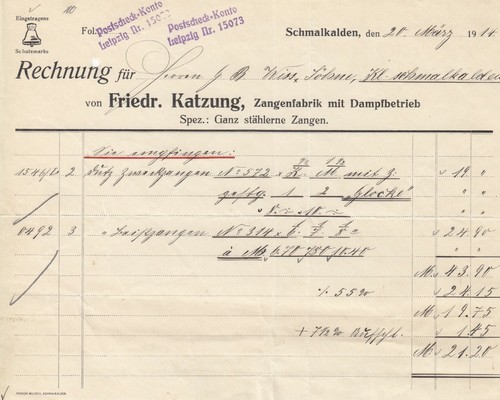 Eingetragens
Schutzmarke
Fol.
Postscheck-Konto
Leipzig Nr. 15073
Postscheck-Konto
Leipzig Nr. 15073
Schmalkalden, den 20. März 1914
Rechnung für Herren J. B. Wiss. Söhne, Kl. schmalkalden
von Friedr. Katzung, Zangenfabrik mit Dampfbetrieb
Spez.: Ganz stählerne Zangen.
Sie empfingen:
2 Dutz Zwickzangen No 572 M mit 3. 19 "
gestg. 1 2 "Glocke"
8.– 10.–
0492 3 " No 314 24.90
à M. 6.70 7.80 10.40
M. 43.90
% 55 24.15
M. 19.75
1.45
M. 21.20